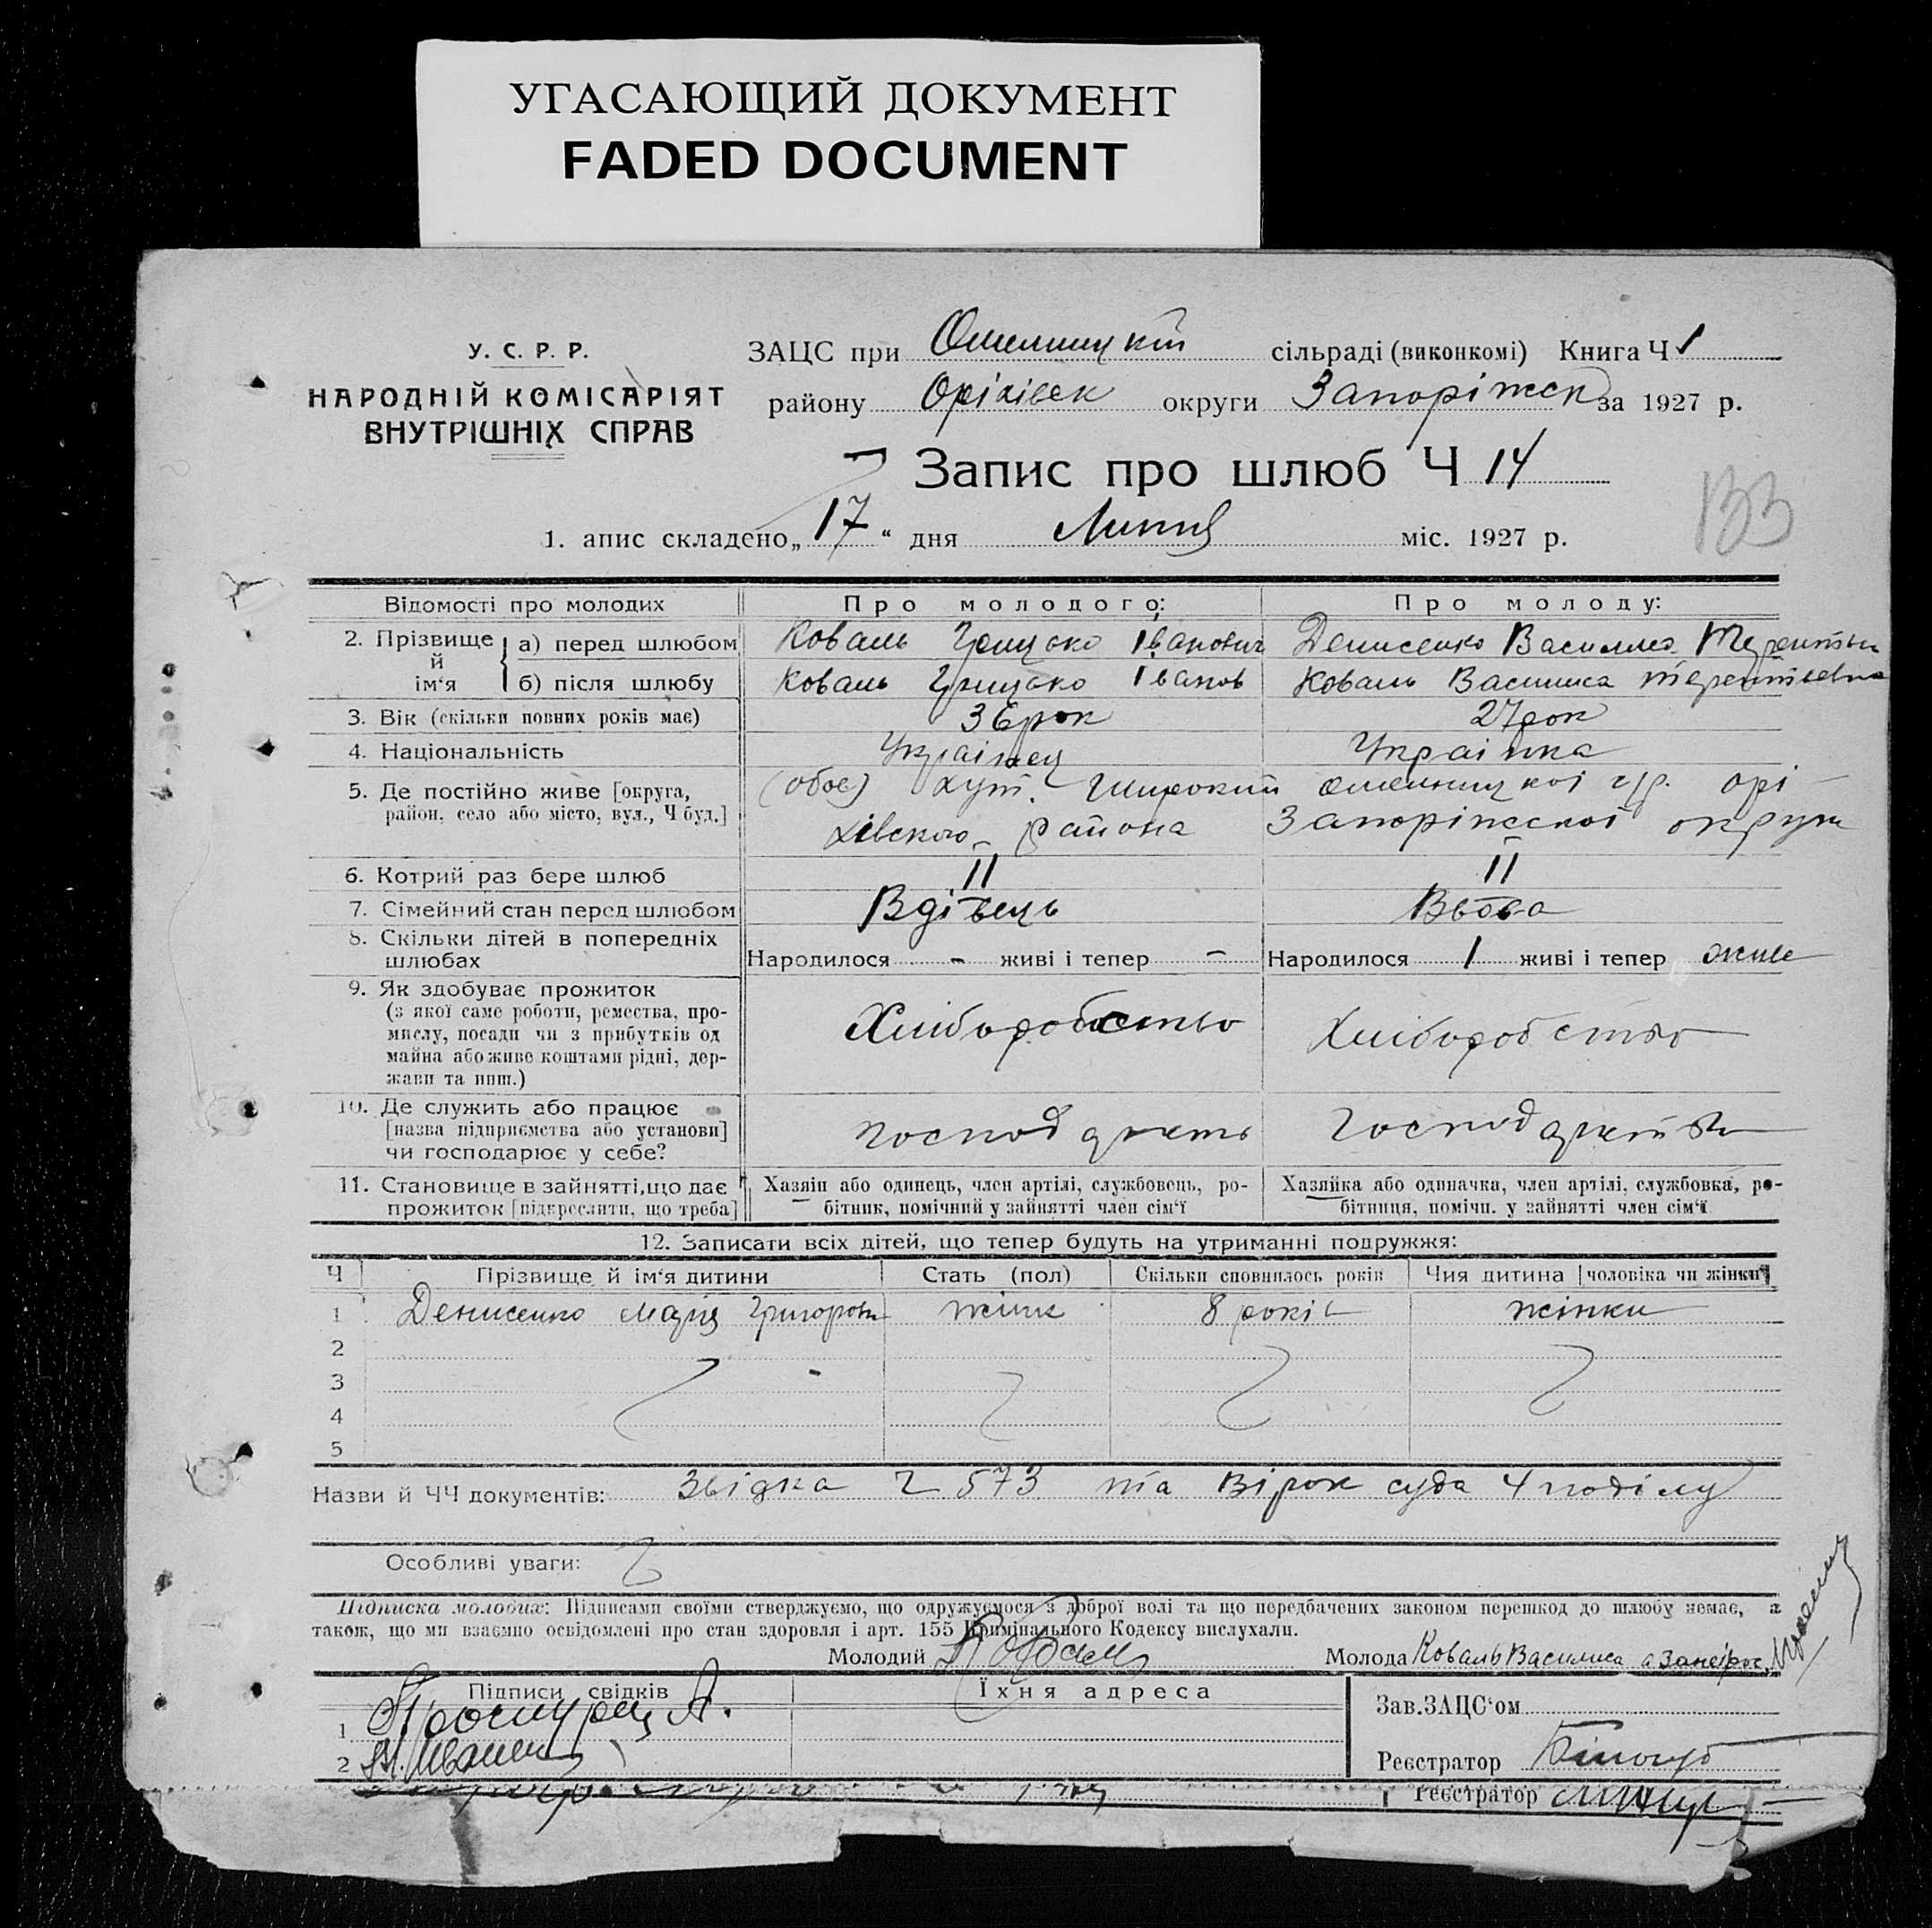 УГАСАЮЩИЙ ДОКУМЕНТ
FADED DOCUMENT
У. С. Р. Р.
НАРОДНІЙ КОМІСАРІЯТ
ВНУТРІШНІХ СПРАВ
ЗАЦС при Омельницькій сільраді (виконкомі) Книга Ч 1
району Оріхівськ округи Запоріжск за 1927 р.
Запис про шлюб Ч 14
1. апис складено „17“ дня Липня міс. 1927 р.
133
Відомості про молодих Про молодого: Про молоду:
2. Прізвище й ім'я
а) перед шлюбом Коваль Грицько Іванович Денисенко Василиса Терентьев
б) після шлюбу Коваль Грицько Іванов Коваль Василиса Терентьевна
3. Вік (скільки повних років має) 36 рок 27 рок
4. Національність Українец Українка
5. Де постійно живе [округа, район, село або місто, вул., Ч буд.] (обоє) хут. Широкий омельницкої с/р. орі
хівского района Запоріжскої округи
6. Котрий раз бере шлюб II II
7. Сімейний стан перед шлюбом Вдівець Вдова
8. Скільки дітей в попередніх шлюбах Народилося - живі і тепер - Народилося 1 живі і тепер живе
9. Як здобуває прожиток
(з якої саме роботи, ремества, про-
мислу, посади чи з прибутків од
майна або живе коштами рідні, дер-
жави та инш.)
Хліборобство Хліборобство
10. Де служить або працює
[назва підприємства або установи]
чи господарює у себе?
11. Становище в зайнятті, що дає
прожиток [підкреслити, що треба]
Хазяїн або одинець, член артілі, службовець, ро-
бітник, помічний у зайнятті член сім'ї
Хазяйка або одиначка, член артілі, службовка, ро-
бітниця, помічн. у зайнятті член сім'ї
12. Записати всіх дітей, що тепер будуть на утриманні подружжя:
Ч Прізвище й ім'я дитини Стать (пол) Скільки сповнилось років Чия дитина [чоловіка чи жінки]
1 Денисенко Марія Григоровн жінк 8 років жінки
2
3
4
5
Назви й ЧЧ документів: Звідка Ч 573 та Вірок суда Ч поділу
Особливі уваги:
Підписка молодих: Підписами своїми стверджуємо, що одружуємося з доброї волі та що передбачених законом перешкод до шлюбу немає, а
також, що ми взаємно освідомлені про стан здоровля і арт. 155 Кримінального Кодексу вислухали.
Молодий Коваль Молода Коваль Василиса
Підписи свідків Їхня адреса Зав.ЗАЦС'ом
1
2 Реєстратор
Реєстратор